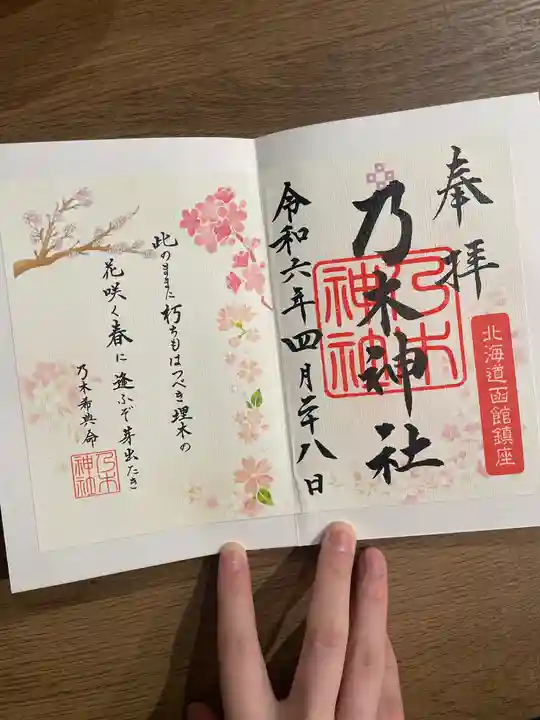 奉拝
北海道函館鎮座
乃木神社
乃木神社
令和六年四月二十八日
此のままに朽ちもはつべき埋木の
花咲く春に逢ふぞ芽出たき
乃木希典命
乃木神社